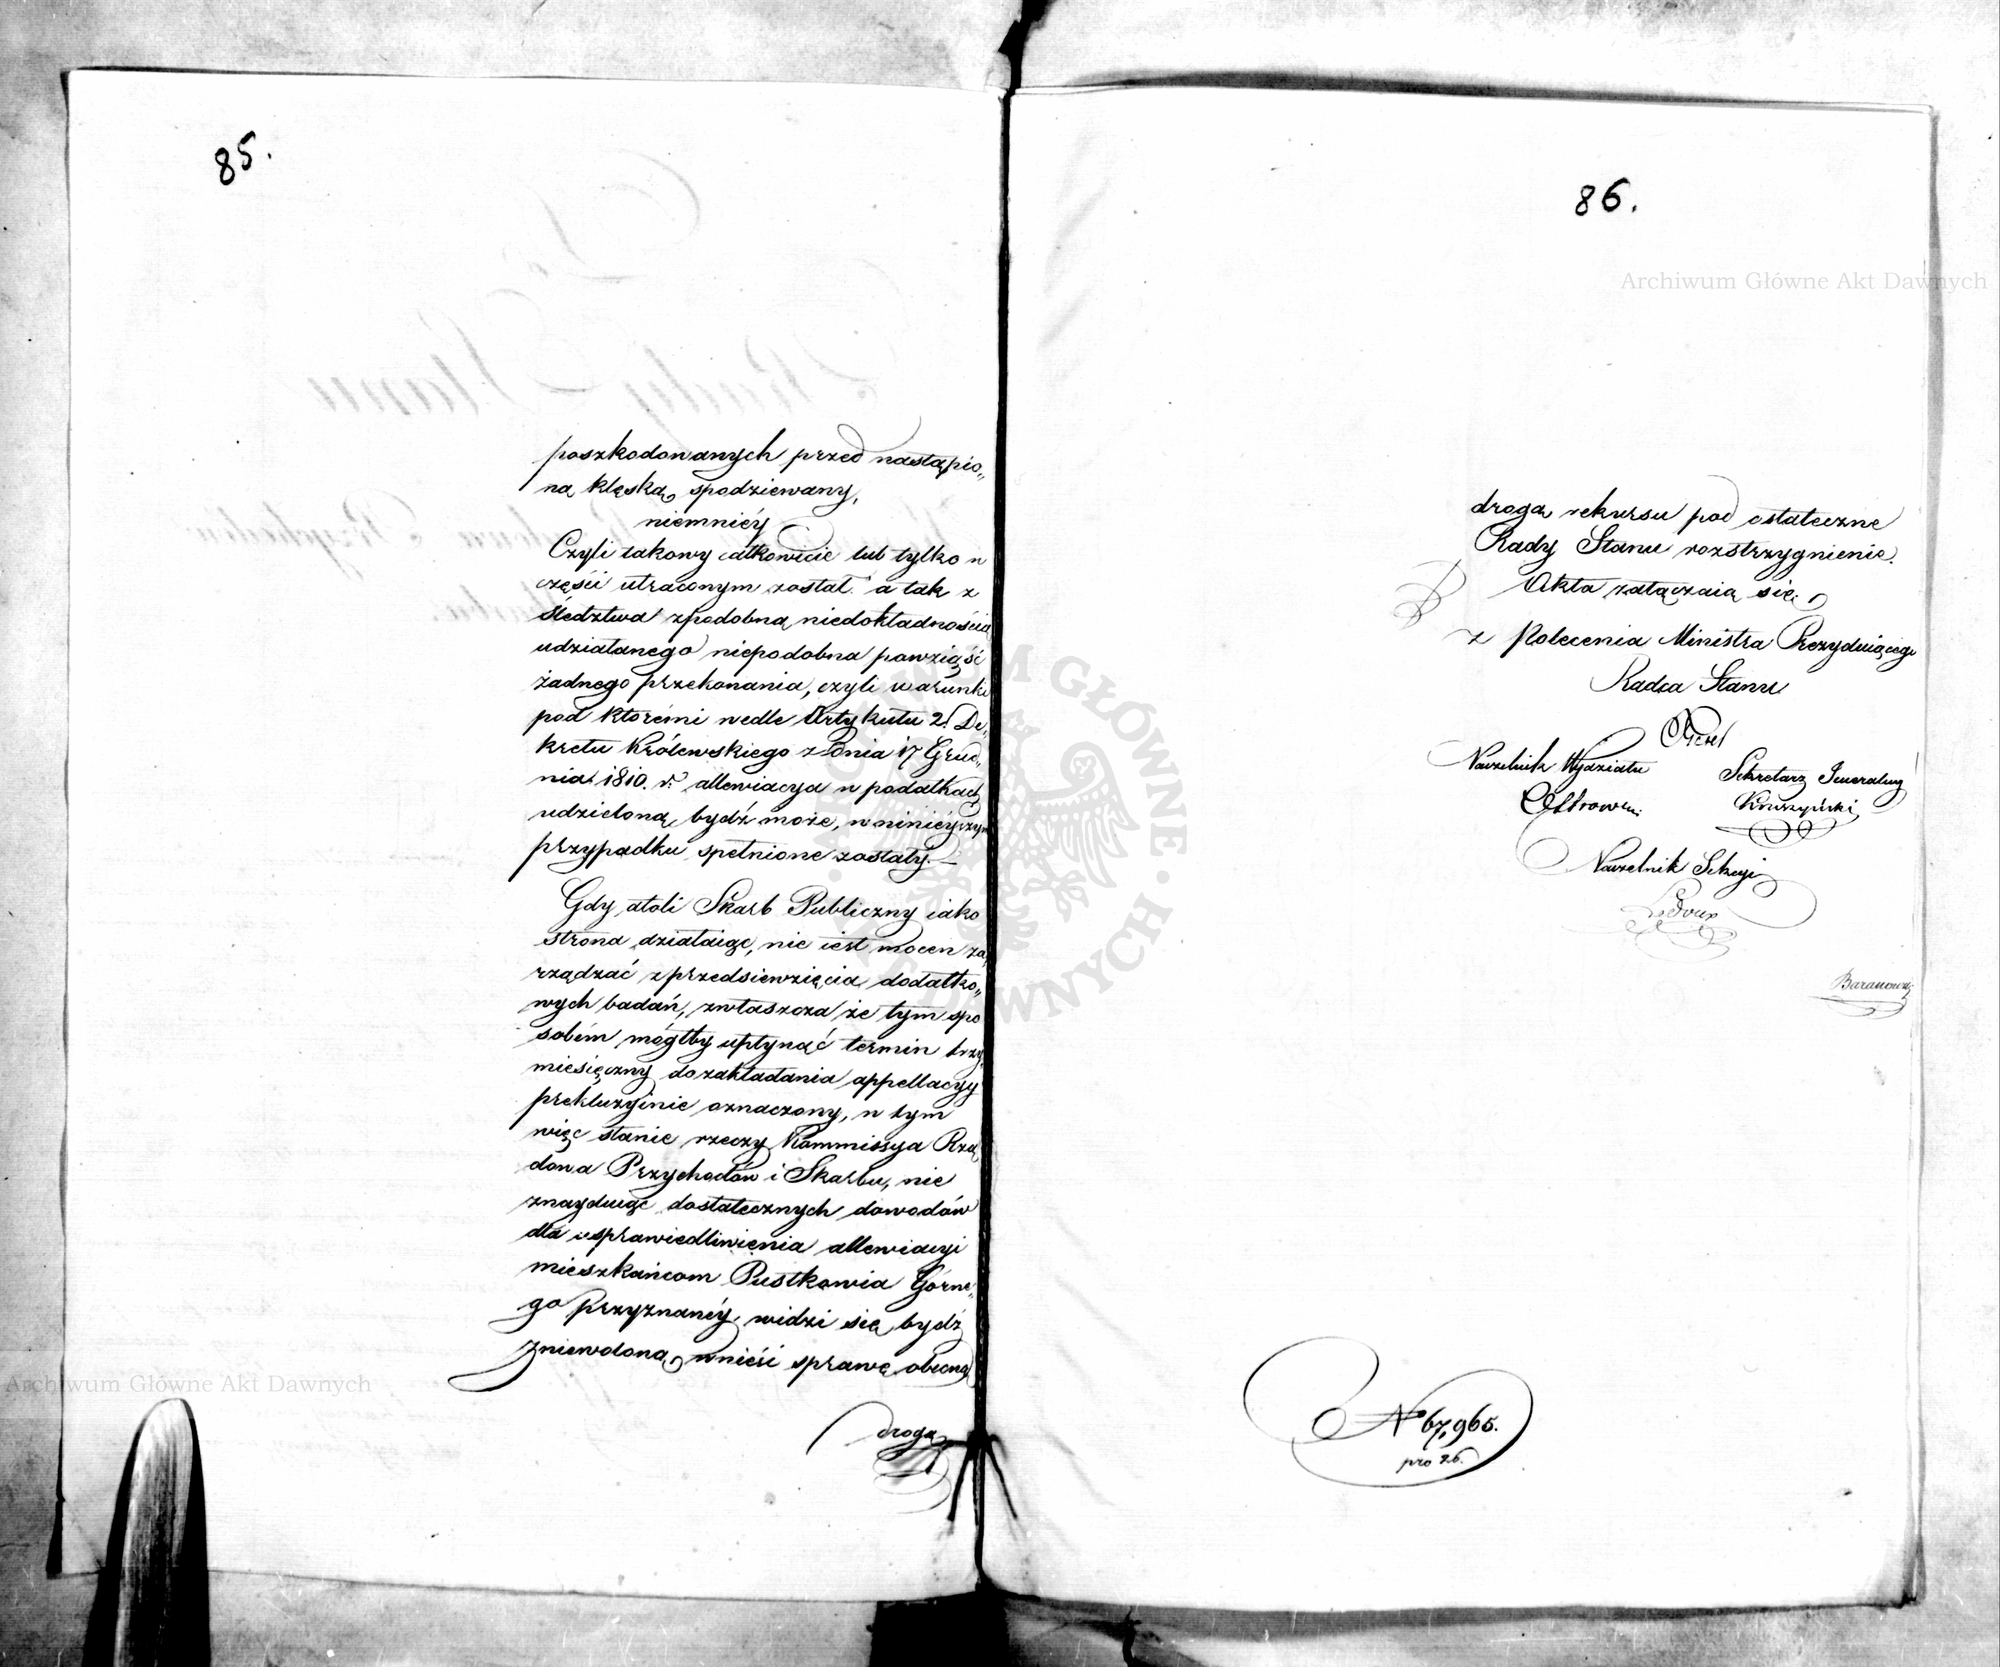 85.
poszkodowanych przed nastąpio„
ną klęską spodziewany,
niemniéy
Czyli takowy całkowicie lub tylko w
części utraconym został. a tak z
śledztwa z podobną niedokładnością
udziałanego niepodobna powziąść
żadnego przekonania, czyli warunki
pod któremi wedle Artykułu 2. De„
kretu Królewskiego z dnia 17 Grud„
nia 1810. r. allewiacya w podatkach
udzieloną bydź może, w niniéyszym
przypadku spełnione zostały.—
Gdy atoli Skarb Publiczny iako
strona działaiąc, nie iest mocen za„
rządzać przedsiewzięcia dodatko„
wych badań, zwłaszcza że tym spo
sobem mógłby upłynąć termin trzy
miesięczny do zakładania appellacyy
prekluzyinie oznaczony, w tym
więc stanie rzeczy Kommissya Rzą
dowa Przychodów i Skarbu, nie
znayduiąc dostatecznych dowodów
dla usprawiedliwienia allewiacyi
mieszkańcom Pustkowia Górne„
go przyznanéy, widzi się bydź
zniewoloną wnieść sprawę obecną
drogą
86.
drogą rekursu pod ostateczne
Rady Stanu rozstrzygnienie.
Akta załączaią się.
z Polecenia Ministra Prezyduiącego
Radca Stanu
Naczelnik Wydziału
Sekretarz Jeneralny
Kruszyński
Naczelnik Sekcyi
Ledoux
Baranowski
N 67,965.
pro 26.
Archiwum Główne Akt Dawnych
Archiwum Główne Akt Dawnych
ARCHIWUM GŁÓWNE AKT DAWNYCH